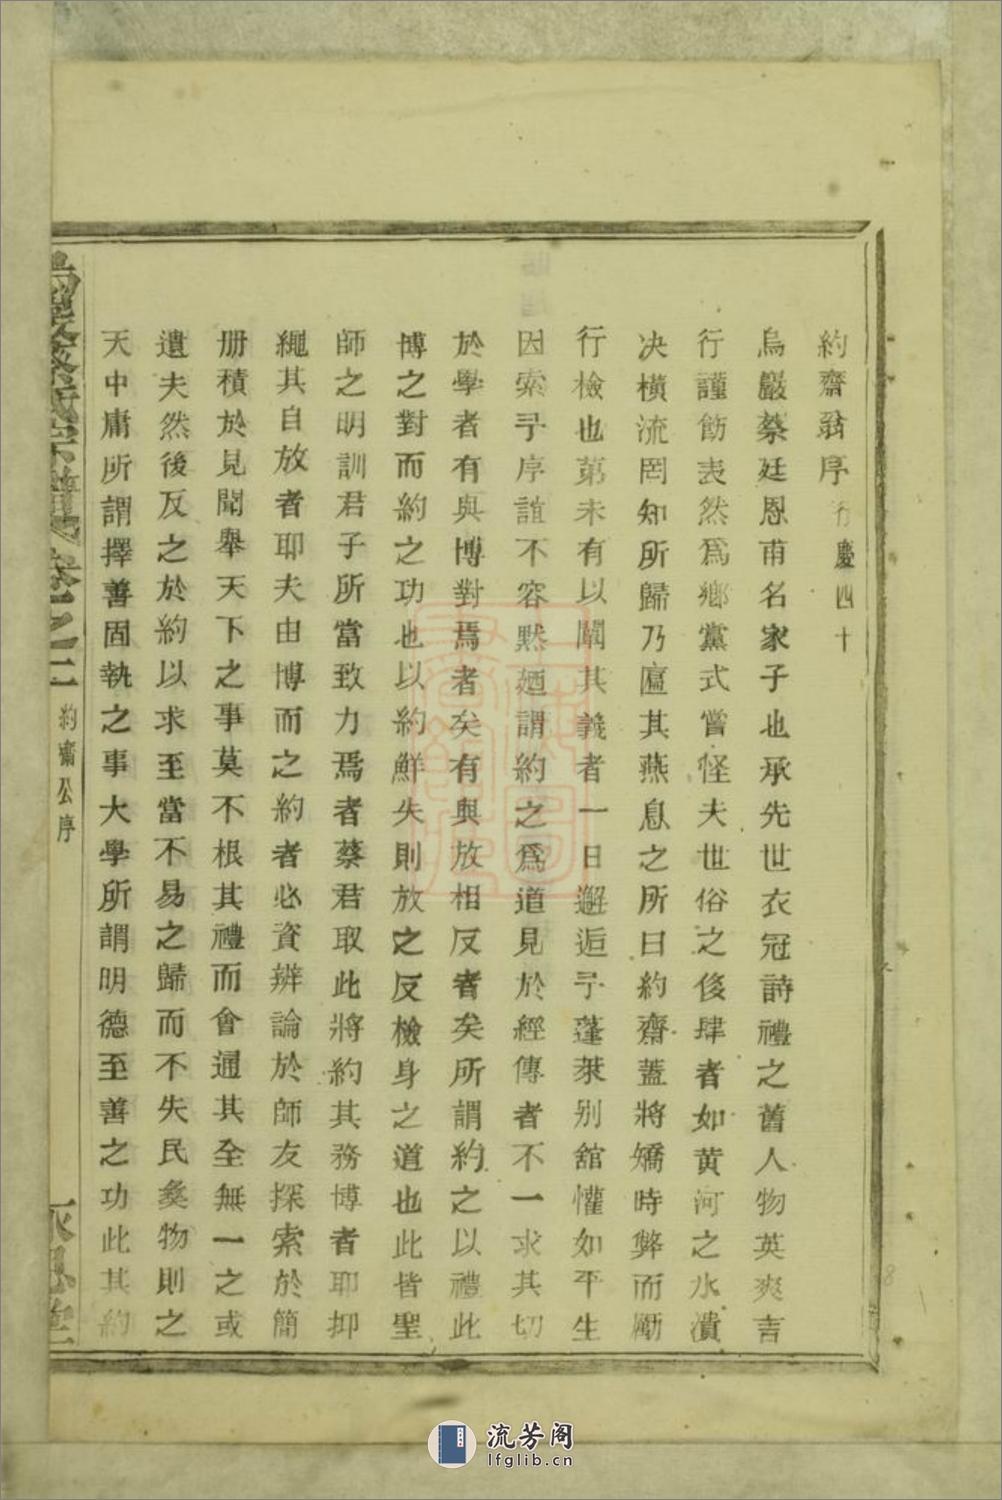 約齋翁序 行慶四十
烏巖蔡廷恩甫名家子也承先世衣冠詩禮之舊人物英爽吉
行謹飭表然爲鄉黨式嘗怪夫世俗之後肆者如黄河之水潰
决橫流罔知所歸乃匾其燕息之所曰約齋蓋將矯時弊而勵
行檢也第未有以闡其義者一日邂逅予蓬萊别舘懽如平生
因索予序誼不容默廼謂約之爲道見於經傳者不一求其切
於學者有與博對焉者矣有與放相反者矣所謂約之以禮此
博之對而約之功也以約鮮失則放之反檢身之道也此皆聖
師之明訓君子所當致力焉者蔡君取此將約其務博者耶抑
繩其自放者耶夫由博而之約者必資辨論於師友探索於簡
册積於見聞舉天下之事莫不根其禮而會通其全無一之或
遺夫然後反之於約以求至當不易之歸而不失民彝物則之
天中庸所謂擇善固執之事大學所謂明德至善之功此其約
烏巖蔡氏宗譜卷之二 約齋公序 永思堂
流芳阁
lfglib.cn